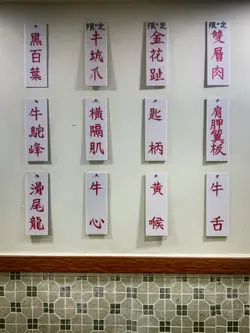 限定
雙層肉
限定
金花趾
限定
牛坑爪
黑百葉
肩胛翼板
匙柄
橫隔肌
牛駝峰
牛舌
黃喉
牛心
滑尾龍